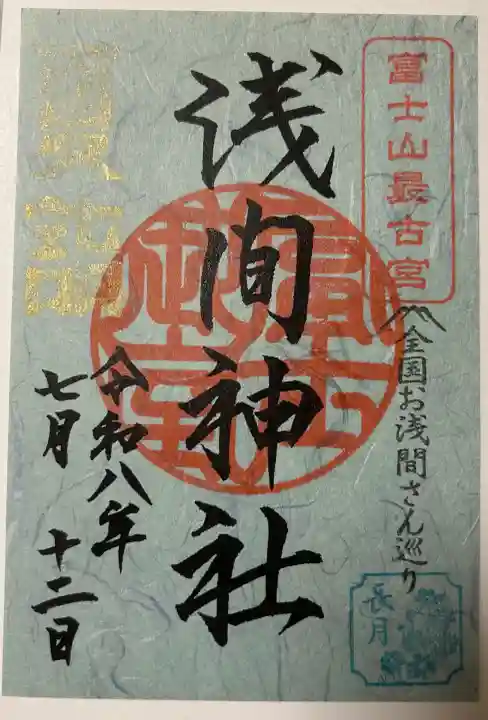 富士山最古宮
全国お浅間さん巡り
長月
浅間神社
令和八年
七月 十二日